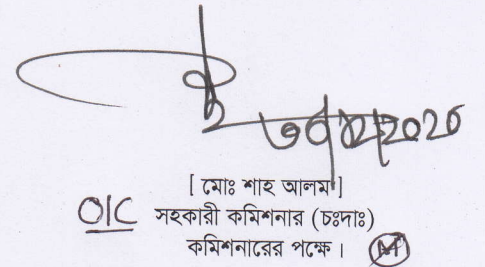 [ মোঃ শাহ আলম ]
OIC সহকারী কমিশনার (চঃদাঃ)
কমিশনারের পক্ষে। M